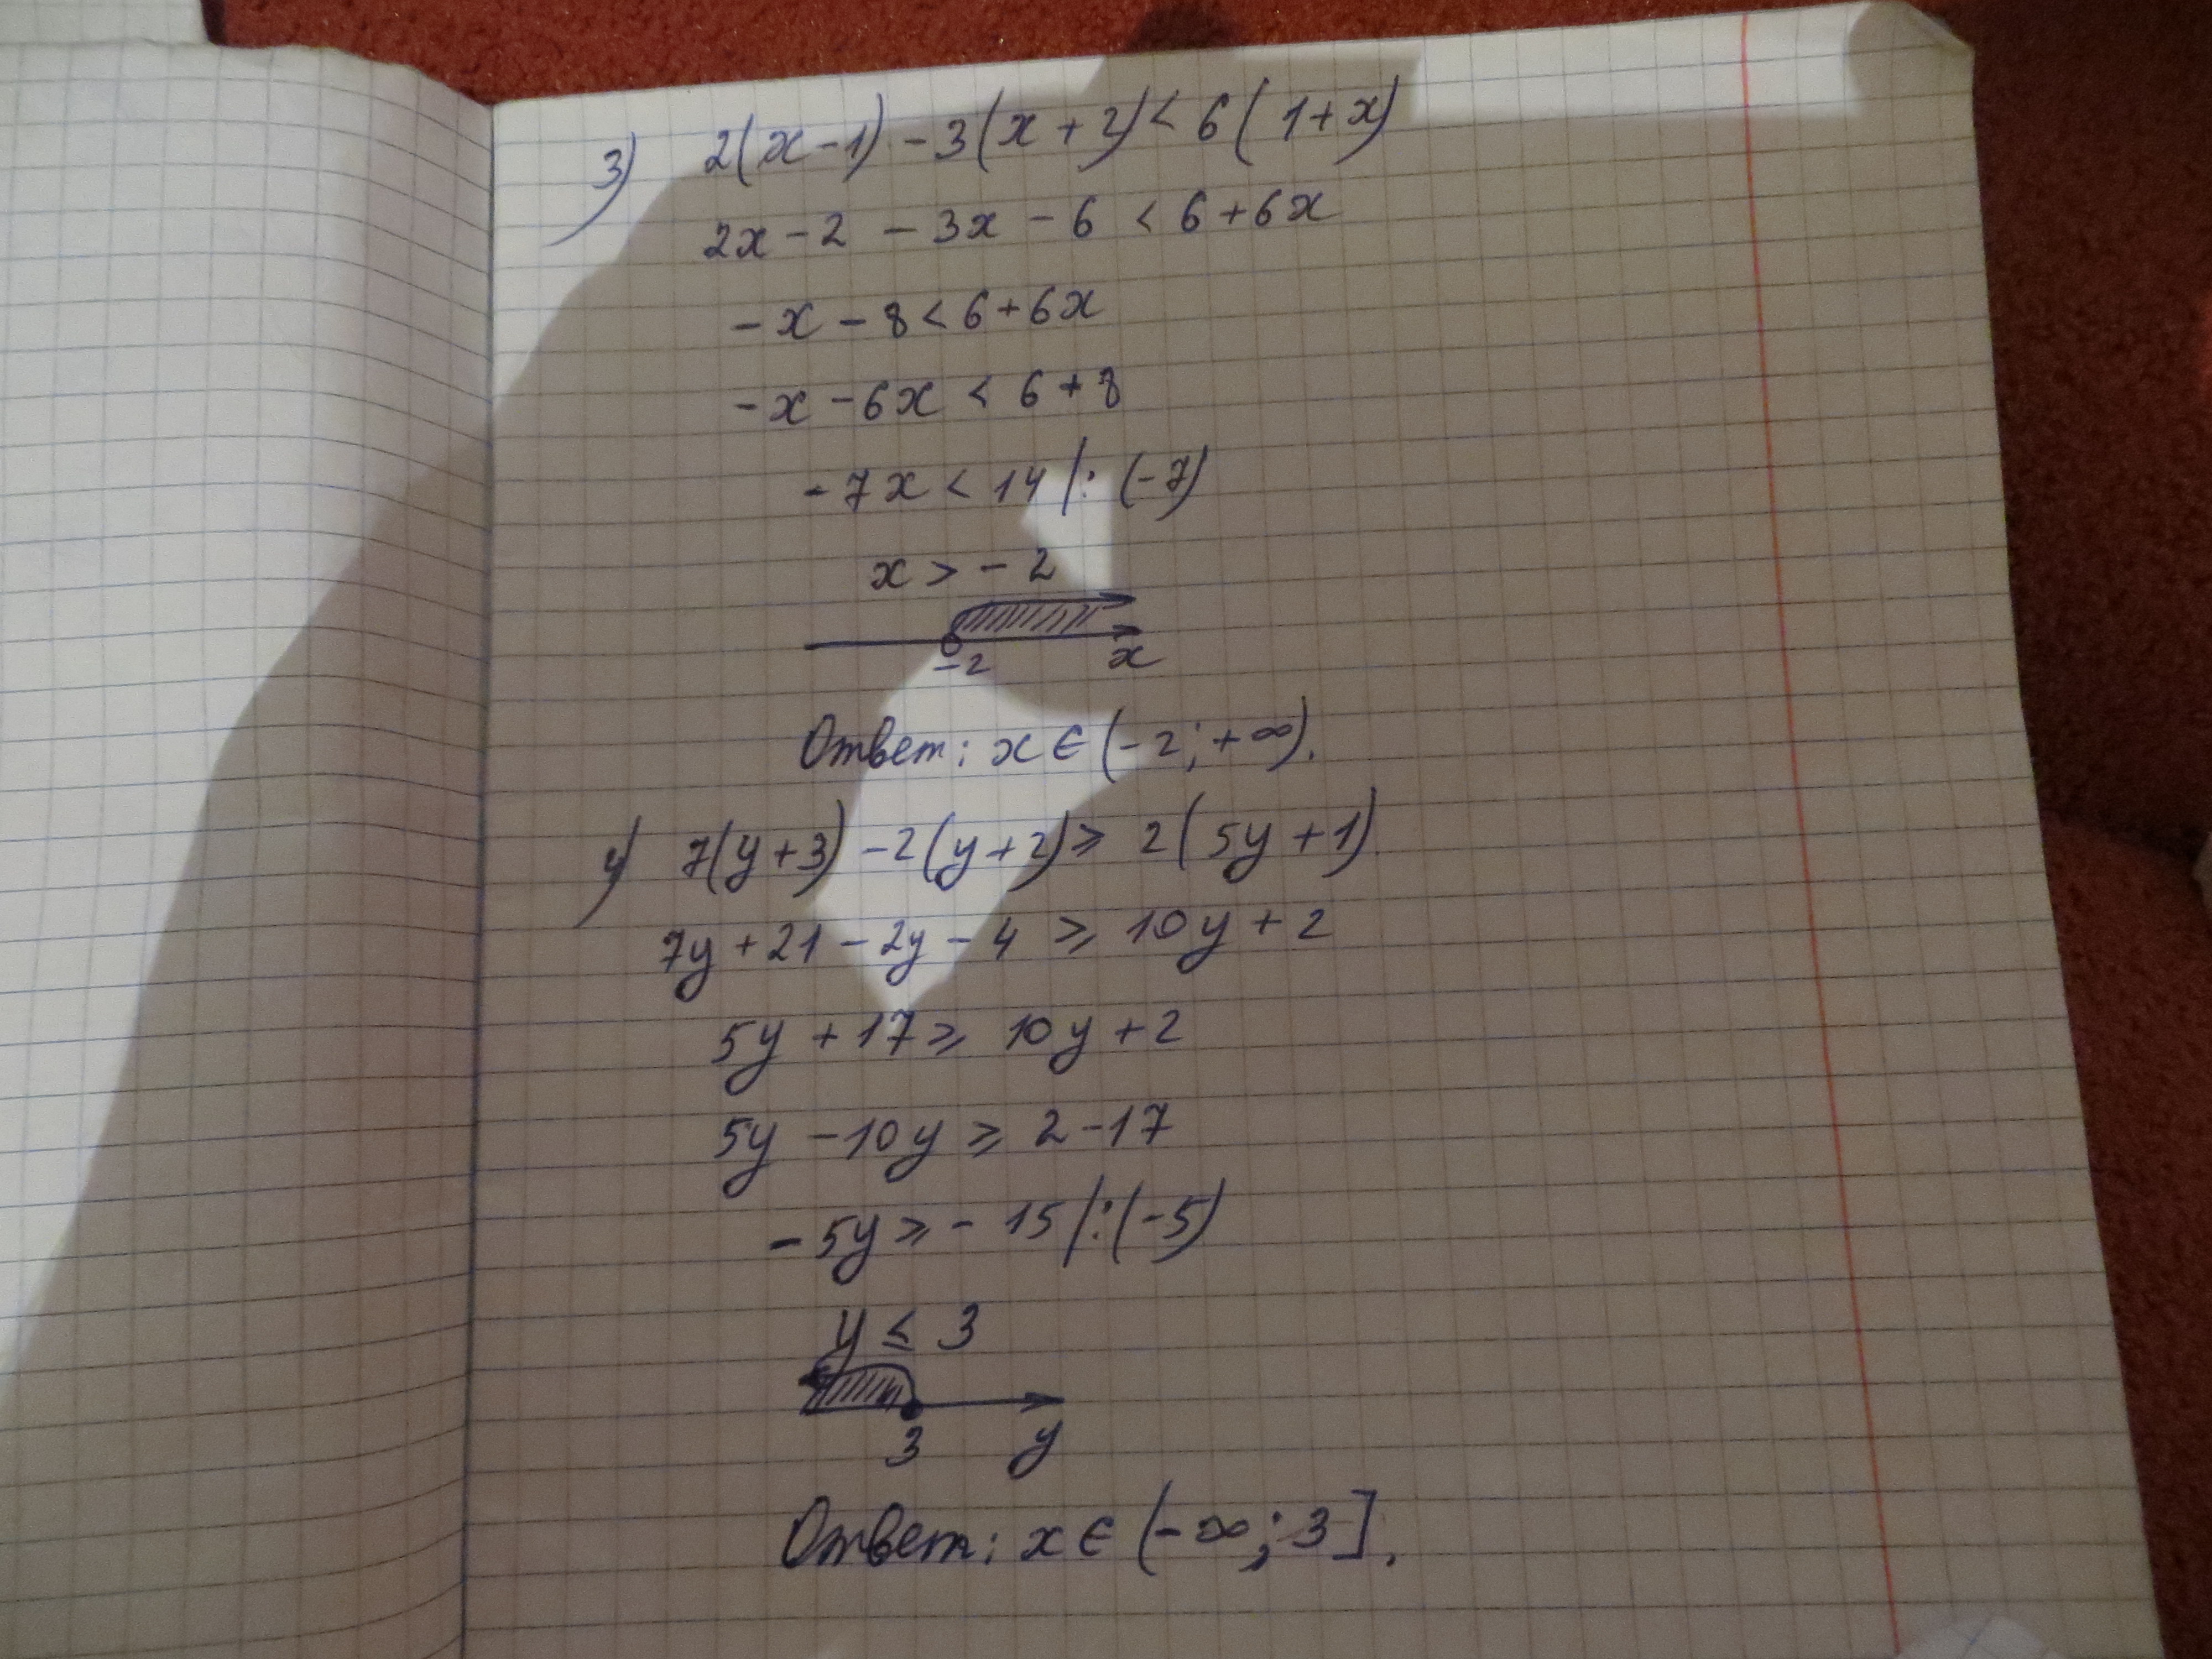 3) 2(x-1)-3(x+2)<6(1+x)
2x-2-3x-6<6+6x
-x-8<6+6x
-x-6x<6+8
-7x<14|:(-7)
x>-2
-2 x
Ответ: x∈(-2;+∞).
4) 7(y+3)-2(y+2)≥2(5y+1)
7y+21-2y-4≥10y+2
5y+17≥10y+2
5y-10y≥2-17
-5y≥-15|:(-5)
y≤3
3 y
Ответ: x∈(-∞;3].